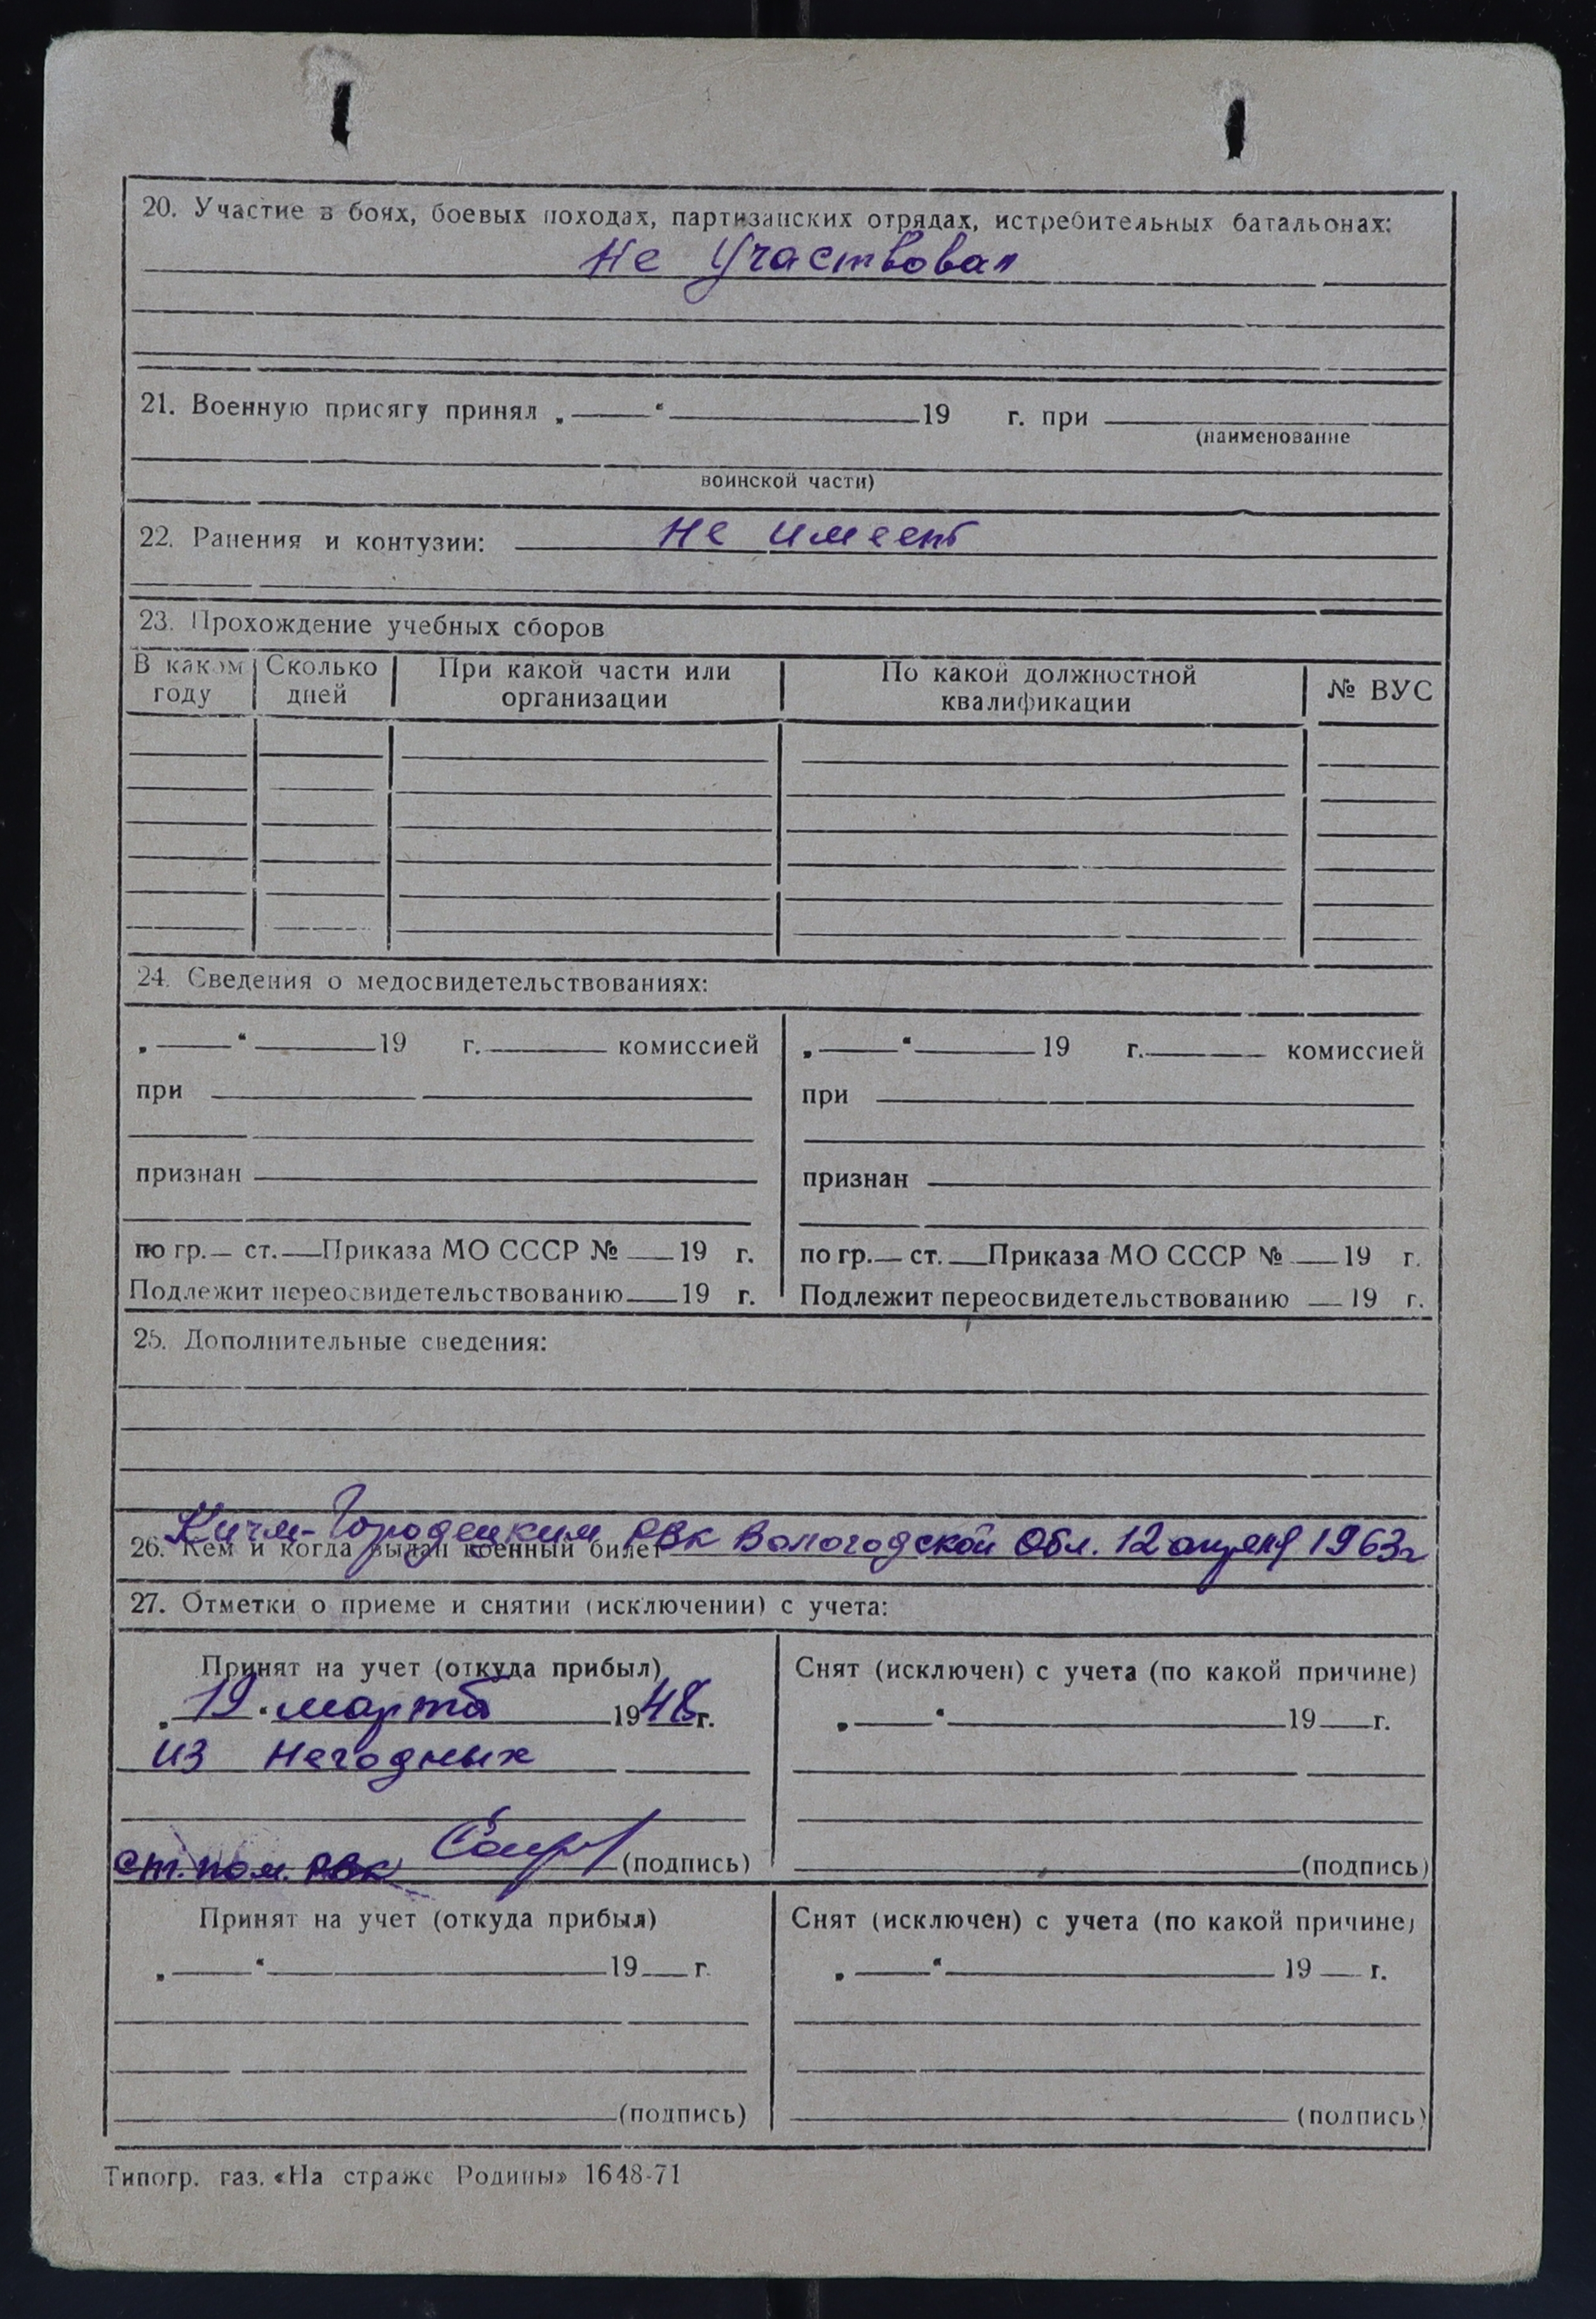 20. Участие в боях, боевых походах, партизанских отрядах, истребительных батальонах:
Не участвовал
21. Военную присягу принял „ “ 19 г. при
(наименование
воинской части)
22. Ранения и контузии: Не имеет
23. Прохождение учебных сборов
В каком году | Сколько дней | При какой части или организации | По какой должностной квалификации | № ВУС
24. Сведения о медосвидетельствованиях:
„ “ 19 г. комиссией
при
признан
по гр. ст. Приказа МО СССР № 19 г.
Подлежит переосвидетельствованию 19 г.
„ “ 19 г. комиссией
при
признан
по гр. ст. Приказа МО СССР № 19 г.
Подлежит переосвидетельствованию 19 г.
25. Дополнительные сведения:
26. Кем и когда выдан военный билет Кичм-Городецким РВК Вологодской Обл. 12 апреля 1963г
27. Отметки о приеме и снятии (исключении) с учета:
Принят на учет (откуда прибыл)
„19“ марта 1948г.
из негодных
ст. пом. РВК (подпись)
Снят (исключен) с учета (по какой причине)
„ “ 19 г.
(подпись)
Принят на учет (откуда прибыл)
„ “ 19 г.
(подпись)
Снят (исключен) с учета (по какой причине)
„ “ 19 г.
(подпись)
Типогр. газ. «На страже Родины» 1648-71